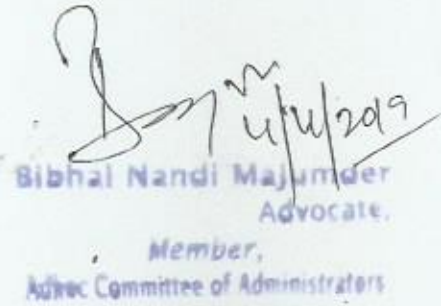 4/4/2019
Bibhal Nandi Majumder
Advocate,
Member,
Adhoc Committee of Administrators